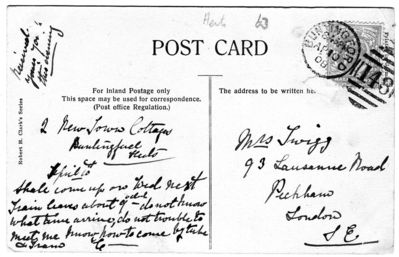 Herts 63
POST CARD
For Inland Postage only
This space may be used for correspondence.
(Post office Regulation.)
The address to be written here
Robert H. Clark's Series
Received
yours
this evening
BUNTINGFORD
AP 19
06
143
2 New Town Cottages
Buntingford
Herts
April 18
Shall come up on Wed next
Train leaves about 9 do not know
what time arrive, do not trouble to
meet me I know how to come by tube
& Tram
Mrs Twigg
93 Lausanne Road
Peckham
London
S E